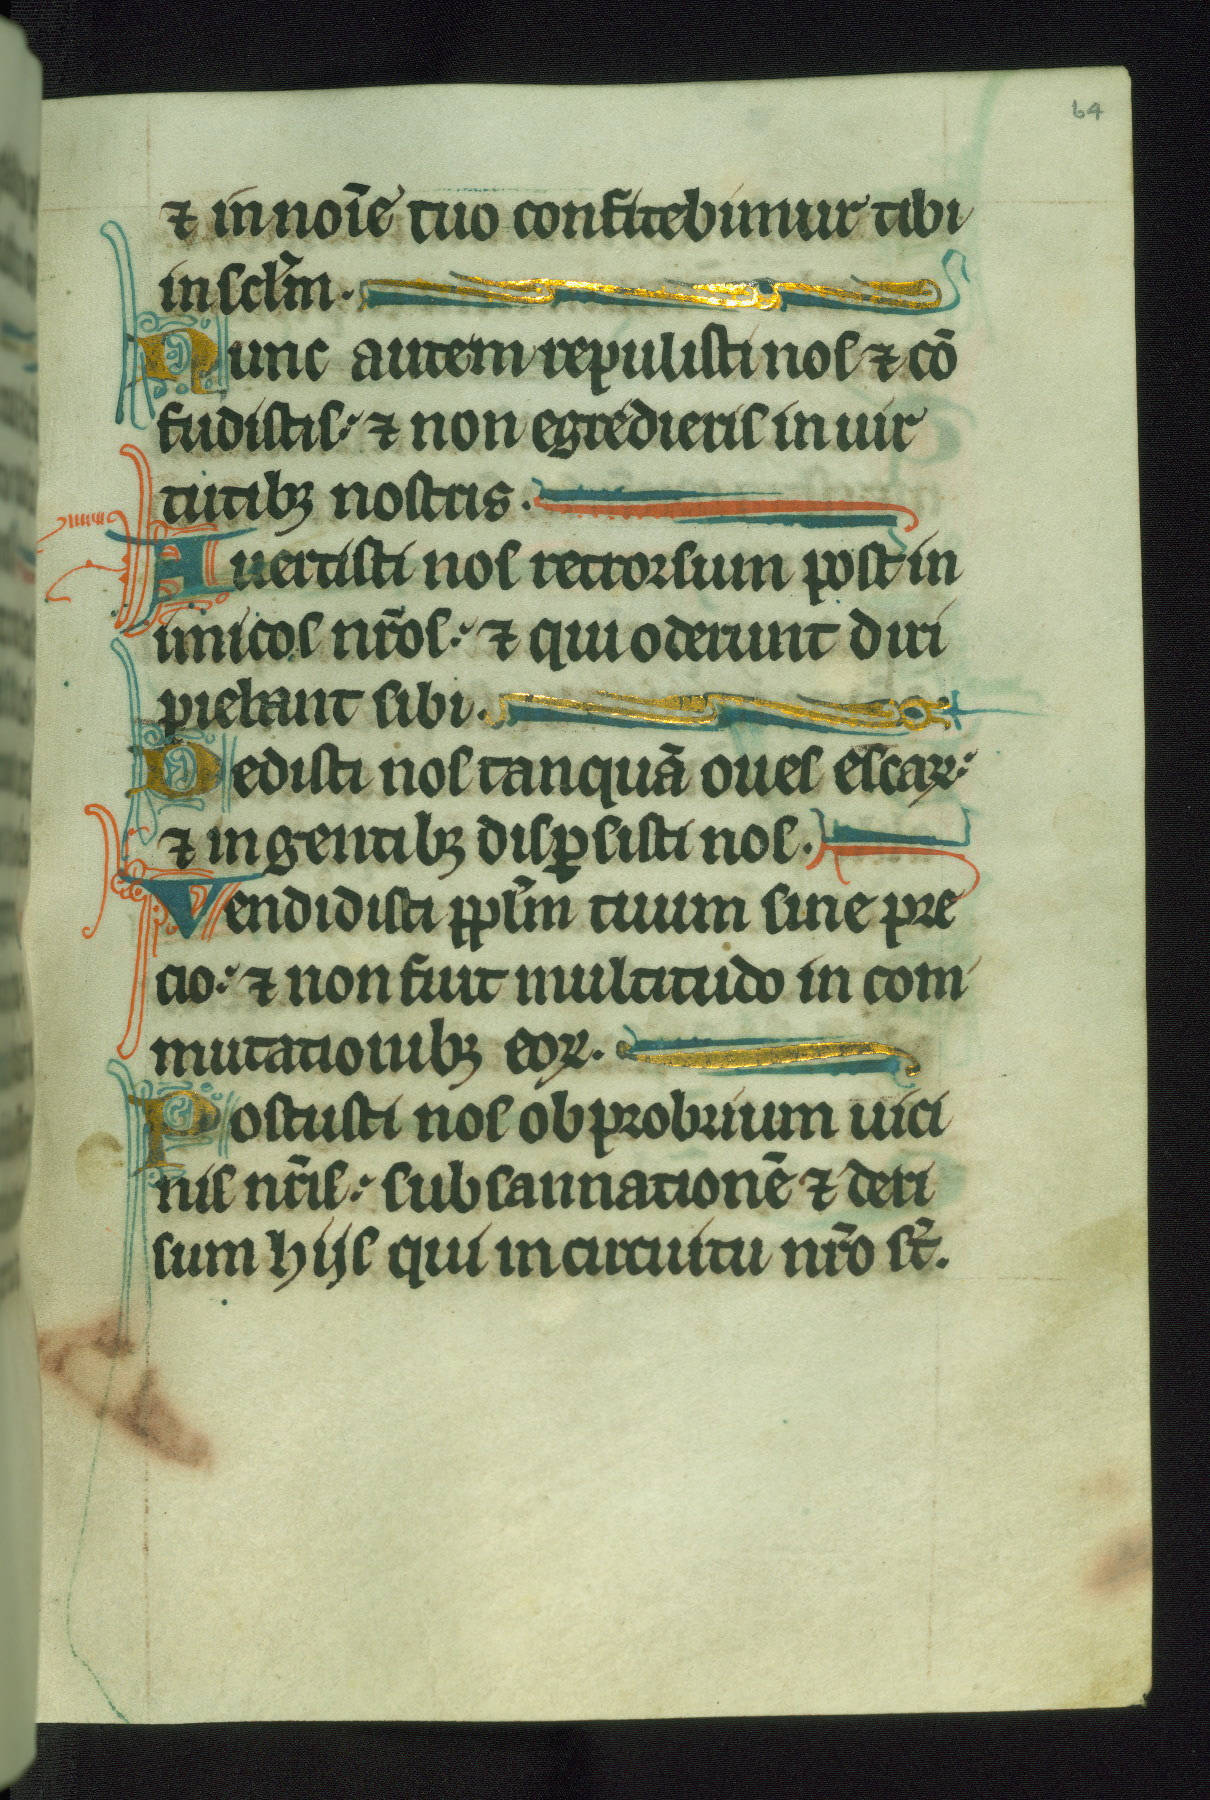 64
⁊ in noīe tuo confitebimur tibi
in scl̄m.
Nunc autem repulisti nos ⁊ cō
fudistis: ⁊ non egredieris in uir
tutibꝫ nostris.
Auertisti nos retrorsum post in
imicos nr̄os: ⁊ qui oderunt diri
piebant sibi.
Dedisti nos tanquā oues escaꝝ:
⁊ in gentibꝫ disꝑsisti nos.
Vendidisti ppl̄m tuum sine pre
cio: ⁊ non fuit multitudo in com
mutationibꝫ eoꝝ.
Posuisti nos obprobrium uici
nis nr̄is: subsannationē ⁊ deri
sum hijs qui in circuitu nr̄o st̄.